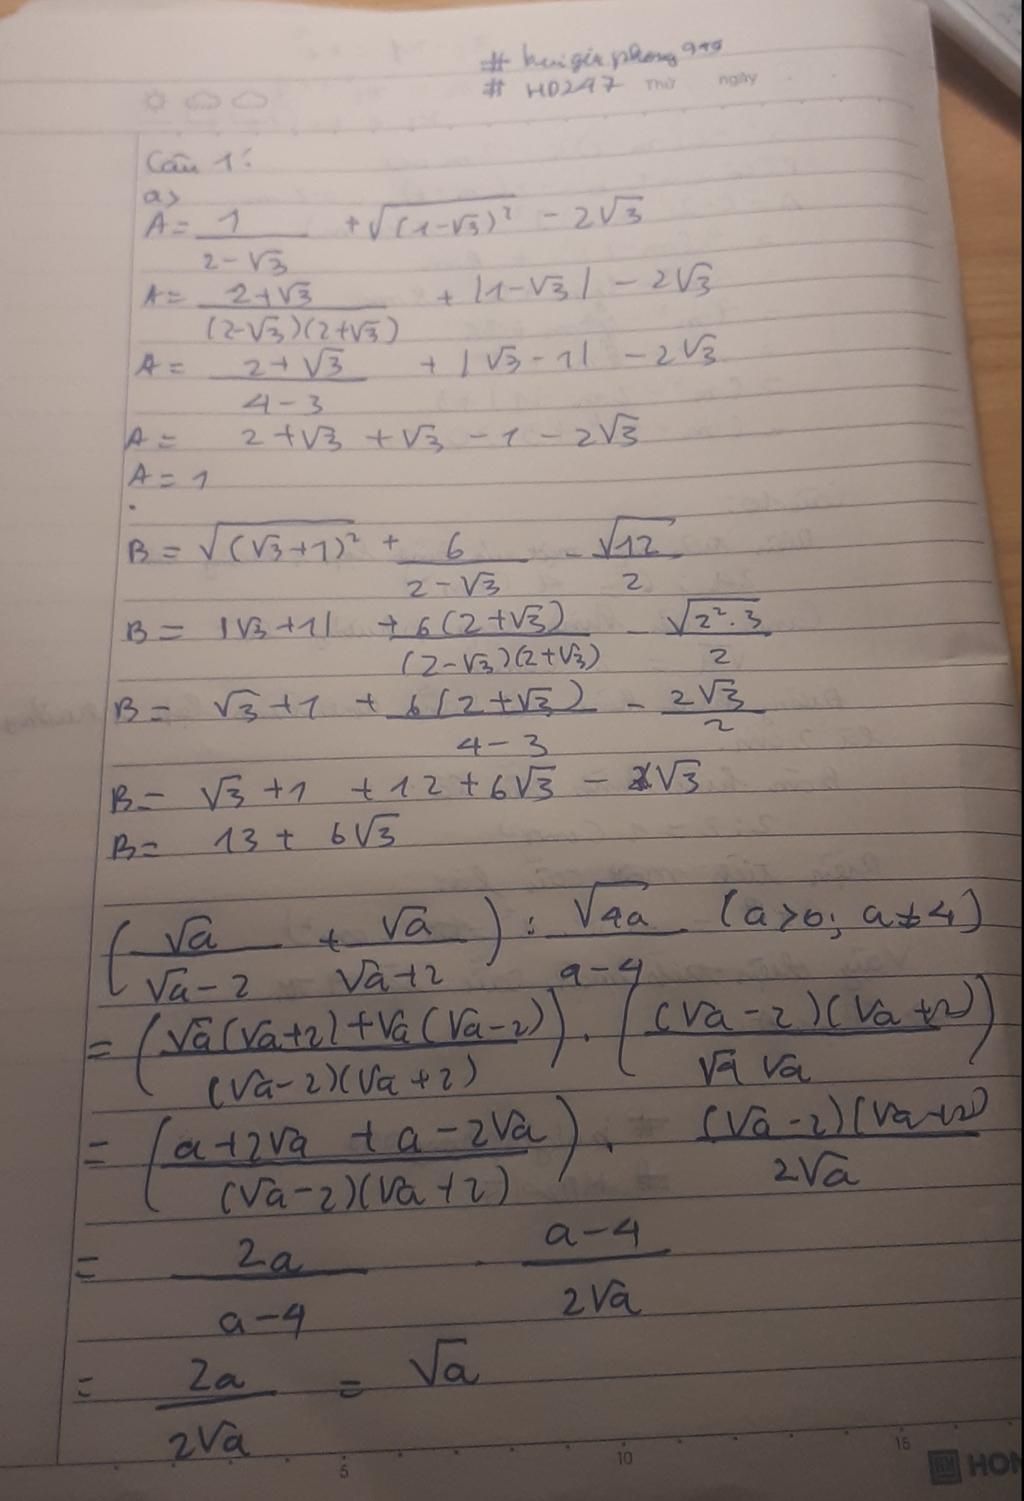 # buigiaphong919
# HD247 Thứ ngày
Câu 1:
a>
A = 1/(2-√3) + √((1-√3)²) - 2√3
A = (2+√3)/((2-√3)(2+√3)) + |1-√3| - 2√3
A = (2+√3)/(4-3) + |√3-1| - 2√3
A = 2+√3 + √3 - 1 - 2√3
A = 1
B = √((√3+1)²) + 6/(2-√3) - √12/2
B = |√3+1| + 6(2+√3)/((2-√3)(2+√3)) - √(2².3)/2
B = √3+1 + 6(2+√3)/(4-3) - 2√3/2
B = √3+1 + 12+6√3 - √3
B = 13 + 6√3
(√a/(√a-2) + √a/(√a+2)) : √4a/(a-4) (a>0; a≠4)
= ((√a(√a+2)+√a(√a-2))/((√a-2)(√a+2))) . ((√a-2)(√a+2)/(√4 √a))
= ((a+2√a + a-2√a)/((√a-2)(√a+2))) . (√a-2)(√a+2)/(2√a)
= 2a/(a-4) . (a-4)/(2√a)
= 2a/(2√a) = √a
5 10 15
HON